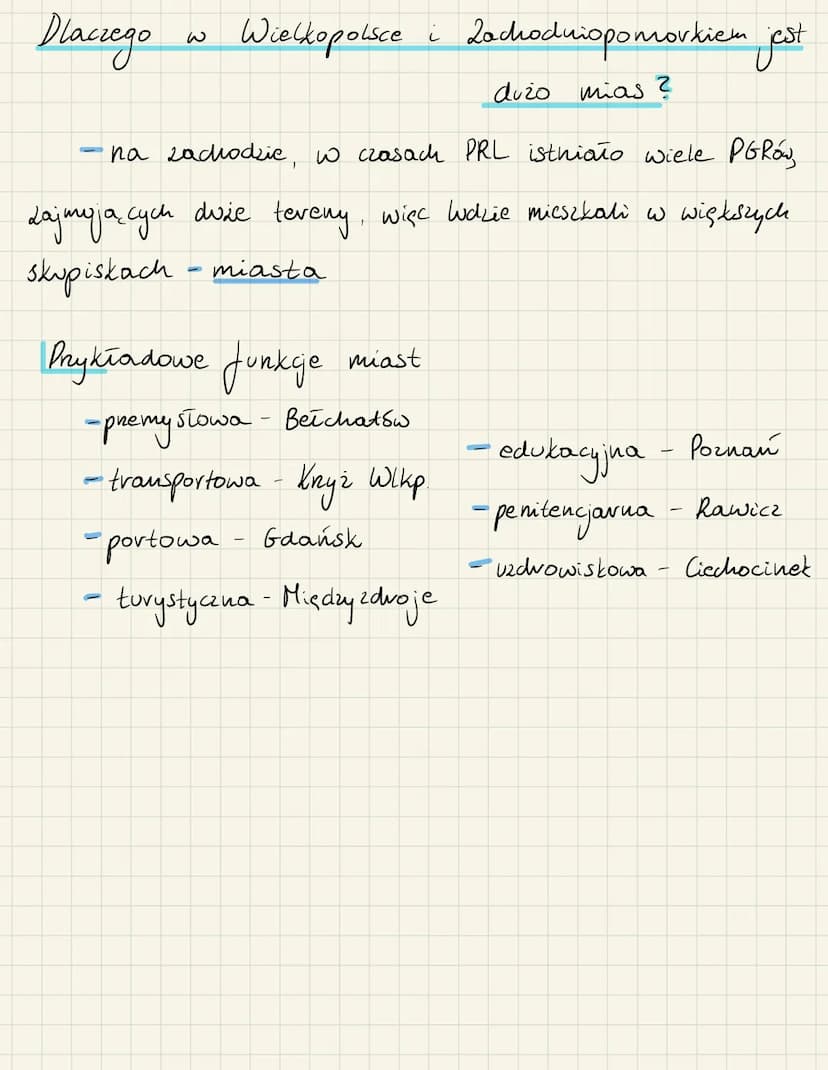 Dlaczego w Wielkopolsce i Zachodniopomorkiem jest
dużo mias?
- na zachodzie, w czasach PRL istniało wiele PGRów,
zajmujących duże tereny, więc ludzie mieszkali w większych
skupiskach - miasta
Przykładowe funkcje miast
- przemysłowa - Bełchatów
- transportowa - Krzyż Wlkp.
- portowa - Gdańsk
- turystyczna - Międzyzdroje
- edukacyjna - Poznań
- penitencjarna - Rawicz
- uzdrowiskowa - Ciechocinek